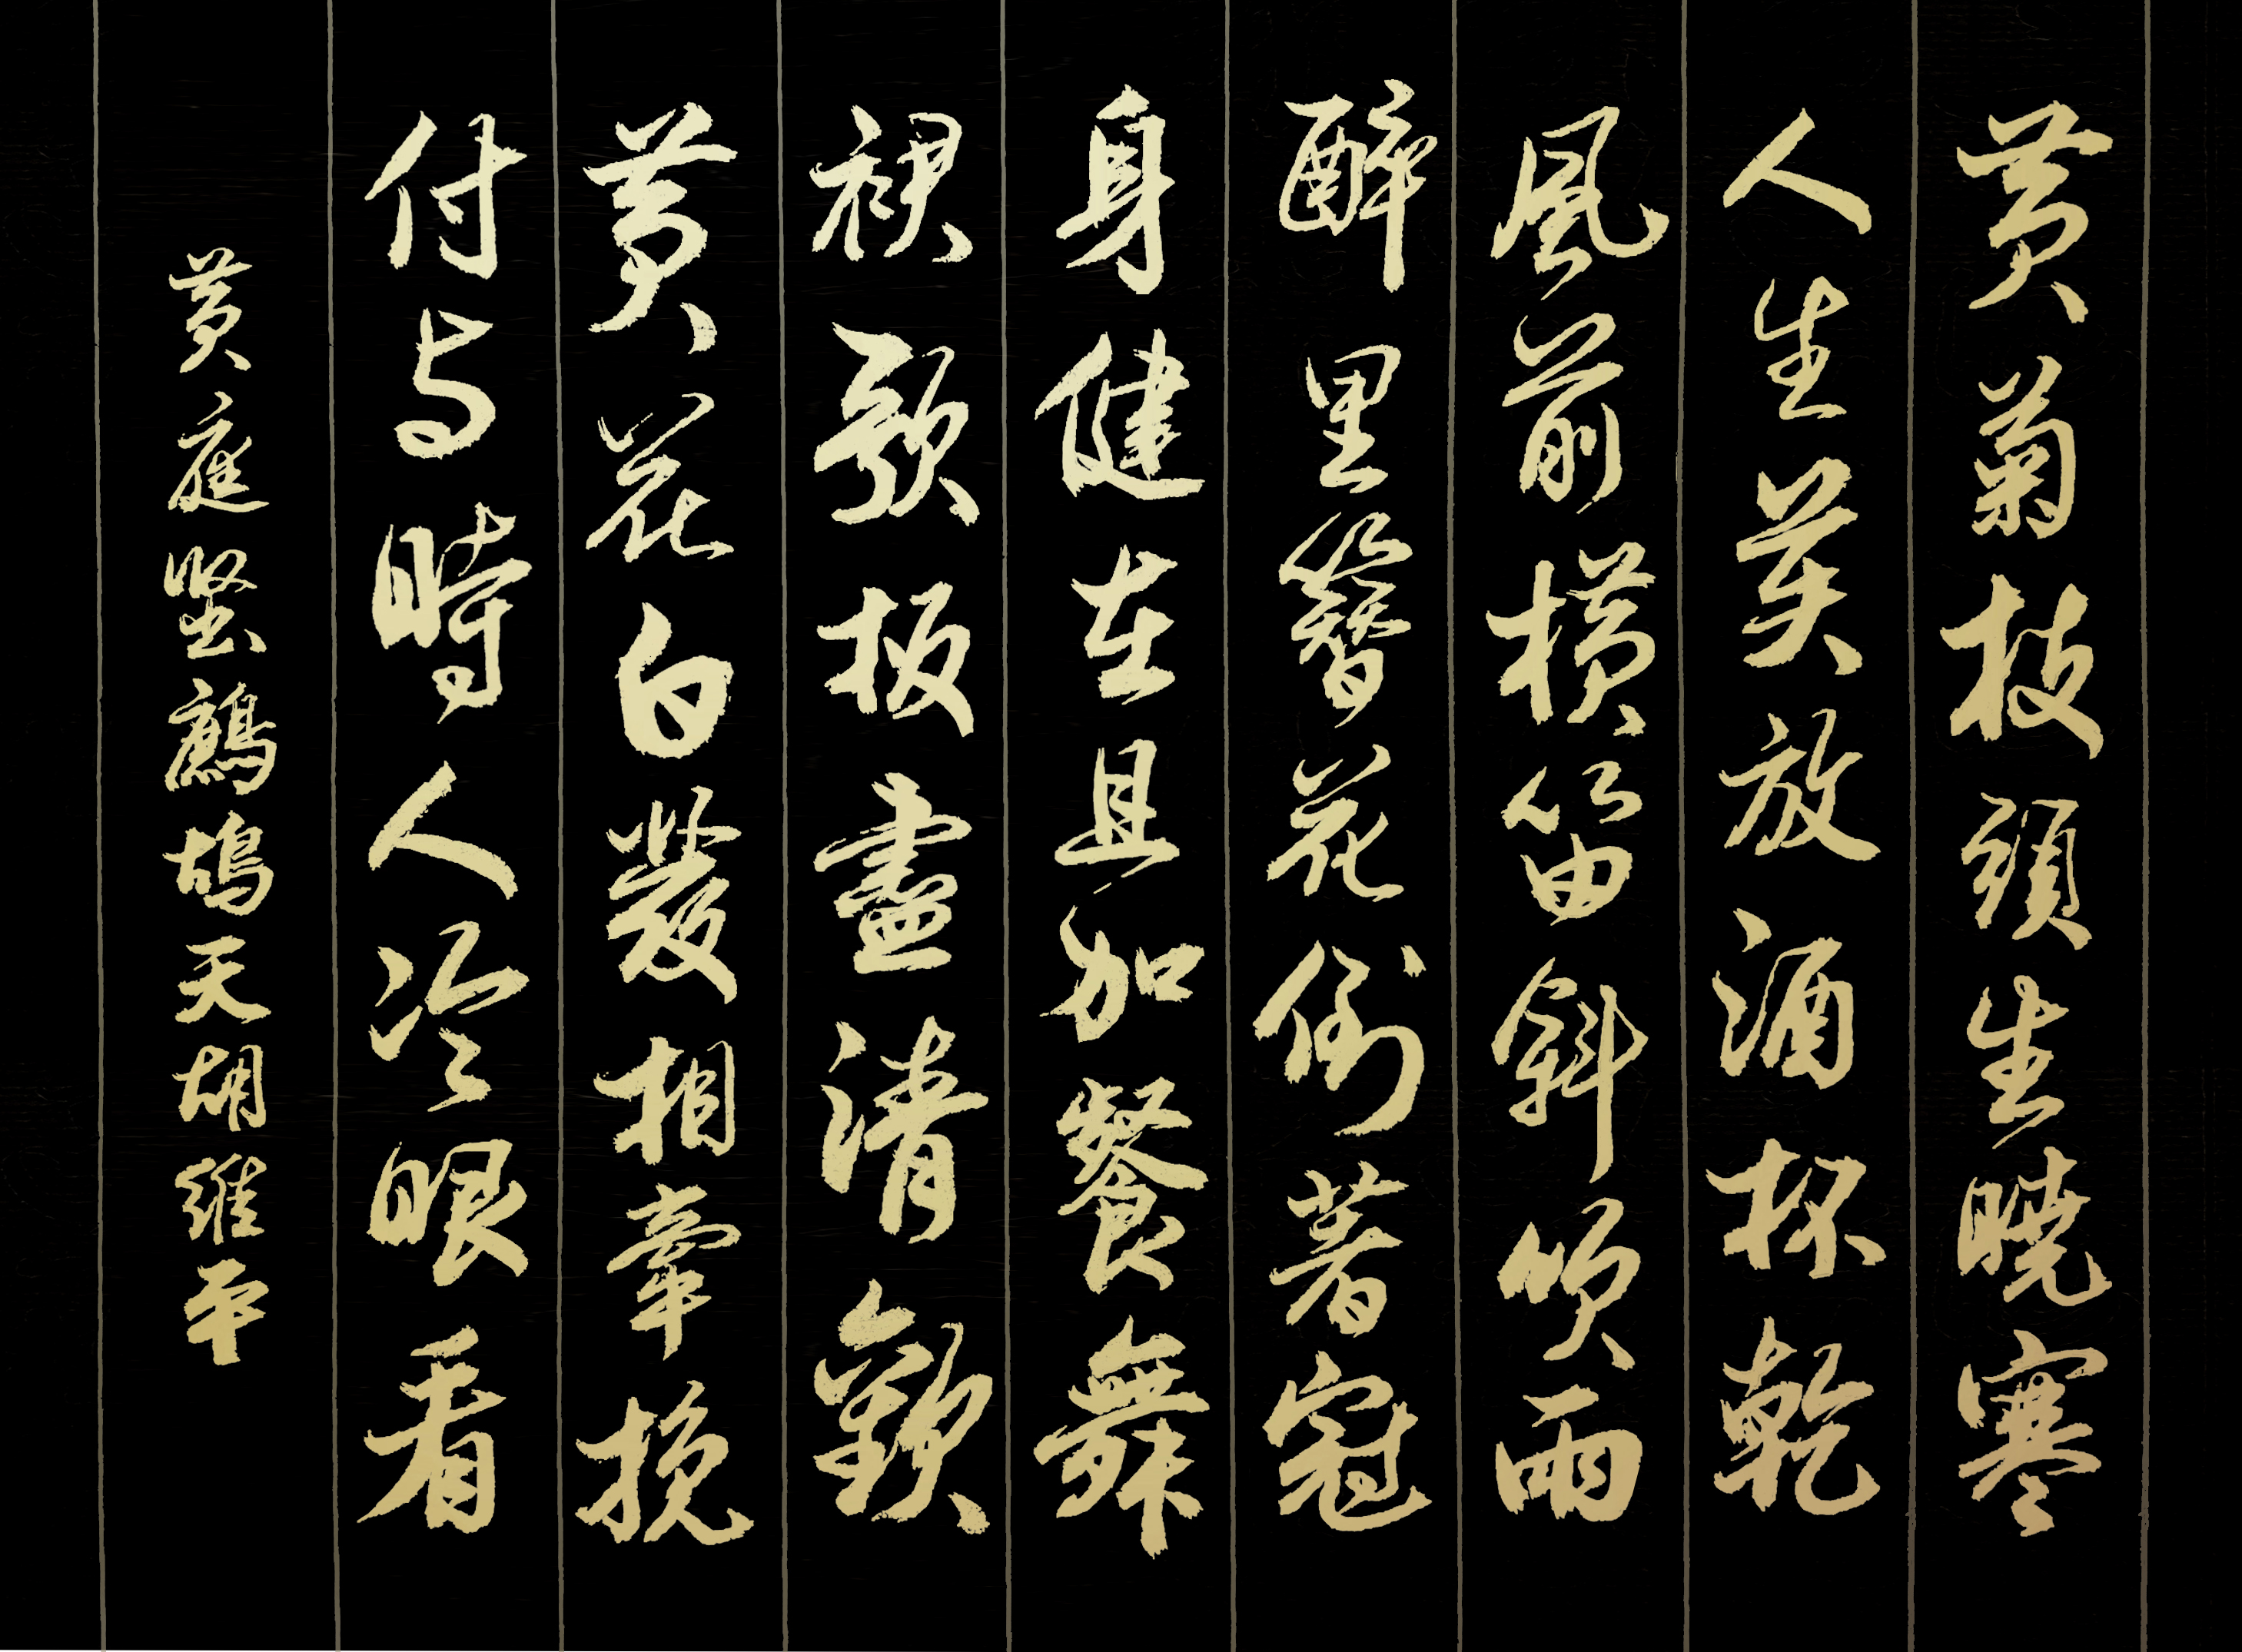 黄菊枝頭生曉寒
人生莫放酒杯乾
風前横笛斜吹雨
醉里簪花倒著冠
身健在且加餐舞
裙歌板盡清歡
黄花白發相牽挽
付与時人冷眼看
黄庭堅鷓鴣天胡維平